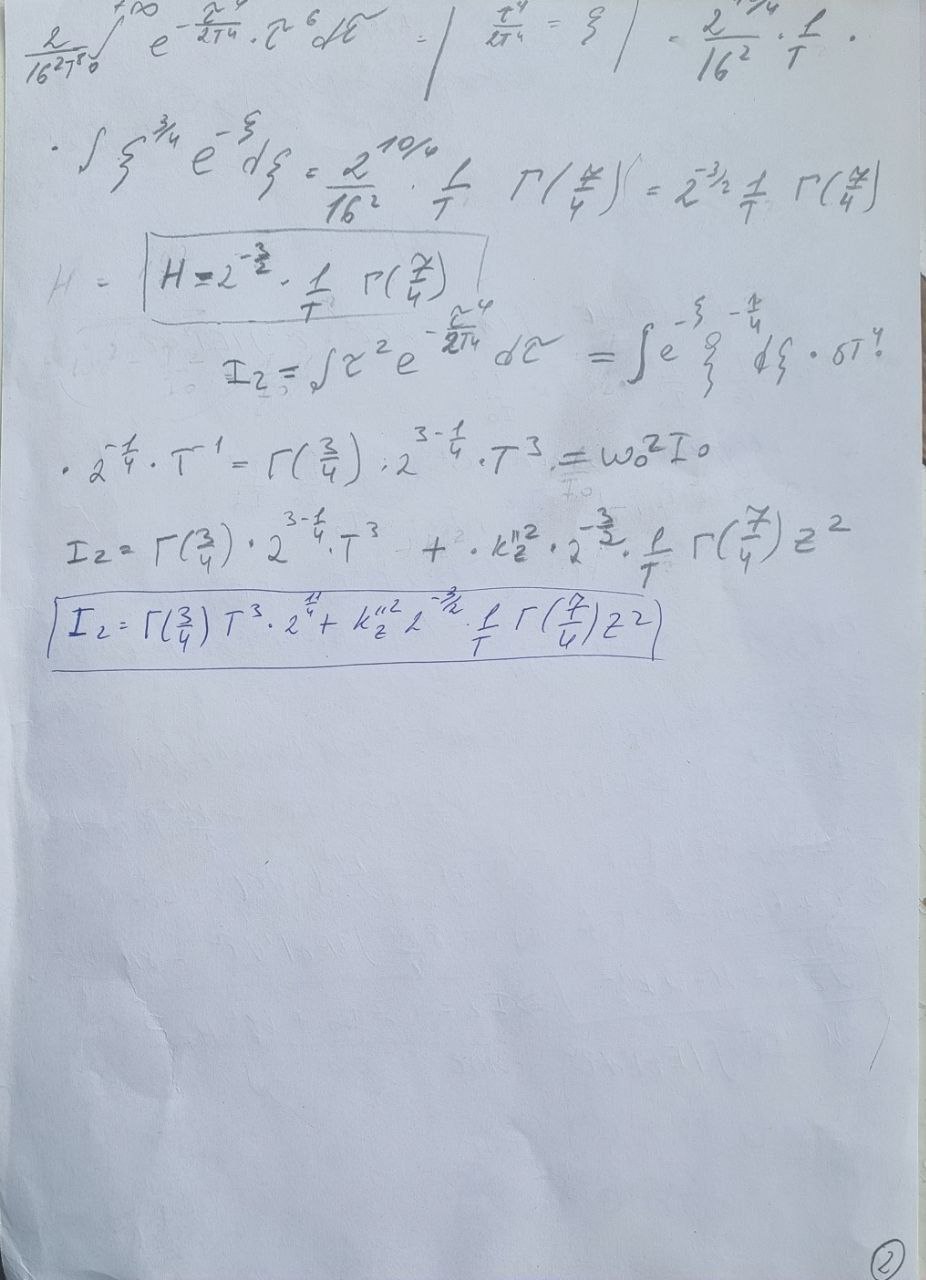 2/(16²T⁸) ∫₀^{+∞} e^{-τ⁴/2T⁴} · τ⁶ dτ = | τ⁴/2T⁴ = ξ | = 2^{10/4}/16² · 1/T ·
· ∫ ξ^{3/4} e^{-ξ} dξ = 2^{10/4}/16² · 1/T Γ(7/4) = 2^{-3/2} 1/T Γ(7/4)
H = H = 2^{-3/2} · 1/T Γ(7/4)
I₂ = ∫ τ² e^{-τ⁴/2T⁴} dτ = ∫ e^{-ξ} ξ^{-1/4} dξ ·
· 2^{-1/4} · T^{-1} = Γ(3/4) · 2^{3-1/4} · T³ = ω₀² I₀
I₂ = Γ(3/4) · 2^{3-1/4} · T³ + · k_z''² · 2^{-3/2} · 1/T Γ(7/4) z²
I₂ = Γ(3/4) T³ · 2^{11/4} + k_z''² 2^{-3/2} · 1/T Γ(7/4) z²
2